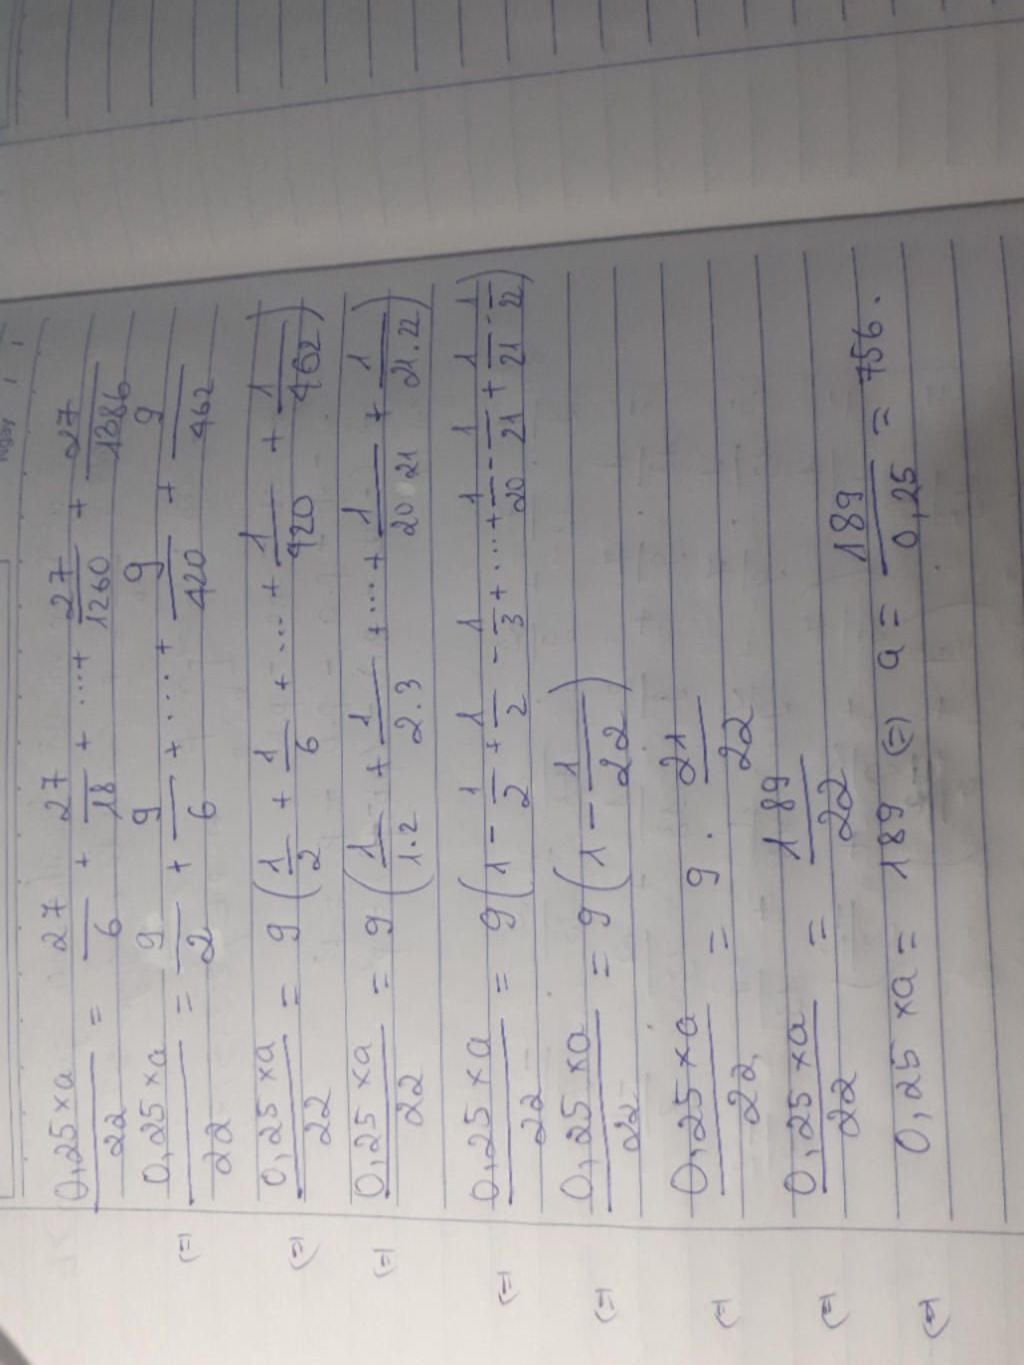 Ngày
0,25×a/22 = 27/6 + 27/18 + ... + 27/1260 + 27/1386
(=) 0,25×a/22 = 9/2 + 9/6 + ... + 9/420 + 9/462
(=) 0,25×a/22 = 9(1/2 + 1/6 + ... + 1/420 + 1/462)
(=) 0,25×a/22 = 9(1/1.2 + 1/2.3 + ... + 1/20 21 + 1/21.22)
(=) 0,25×a/22 = 9(1 - 1/2 + 1/2 - 1/3 + ... + 1/20 - 1/21 + 1/21 - 1/22)
(=) 0,25×a/22 = 9(1 - 1/22)
(=) 0,25×a/22 = 9 . 21/22
(=) 0,25×a/22 = 189/22
(=) 0,25×a = 189 (=) a = 189/0,25 = 756.